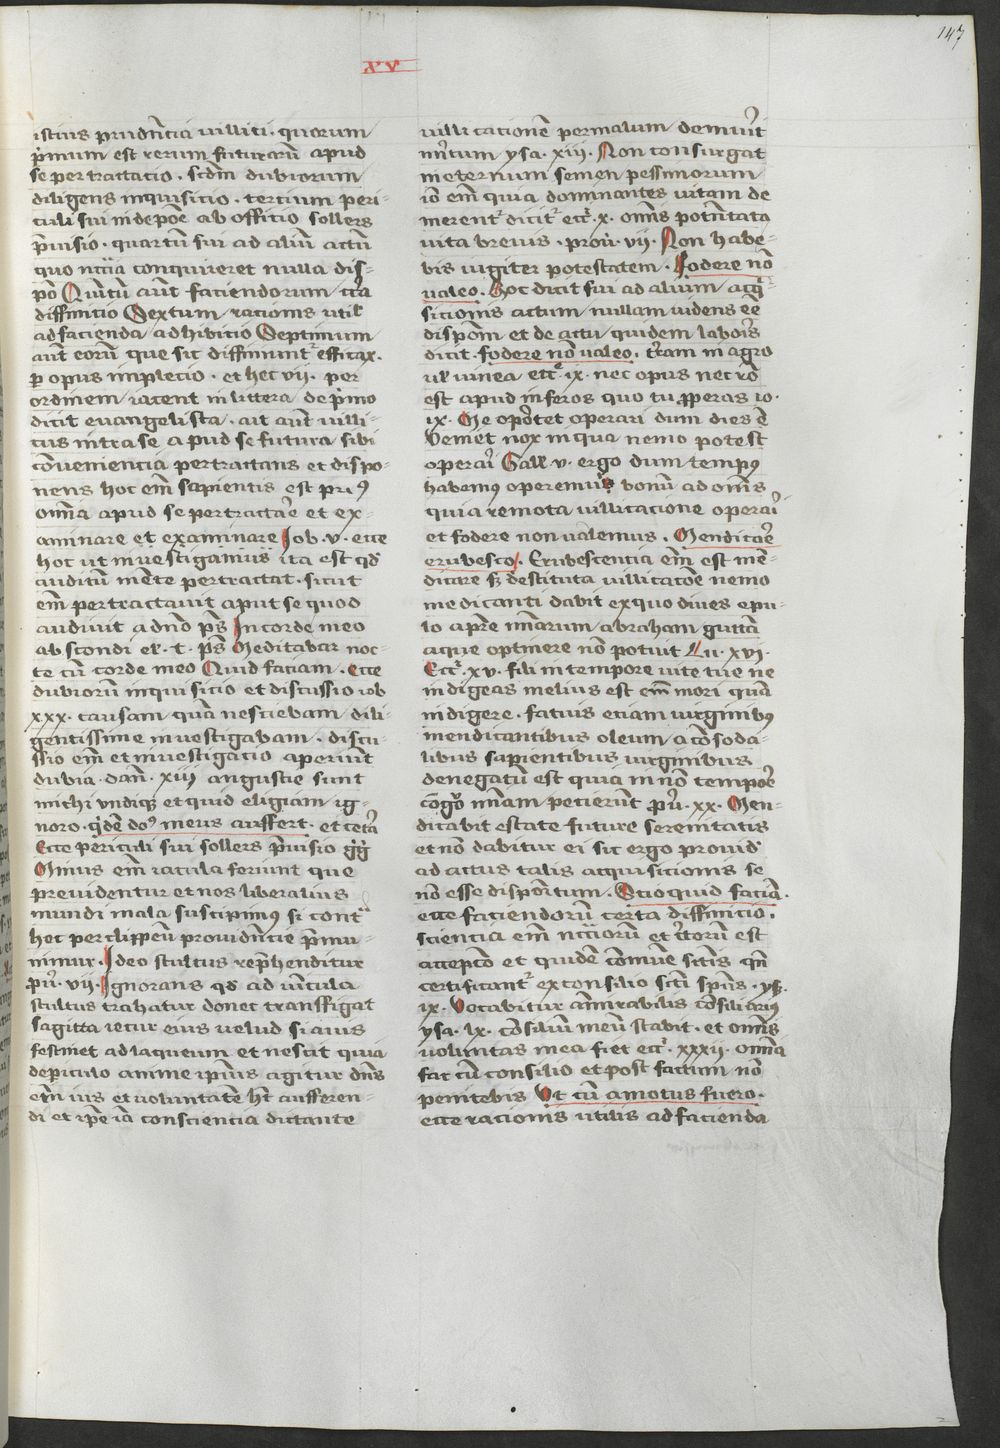 147
XV
istius prudencia villici · quorum
primum est rerum futurarū apud
se pertractacio · scdm dubiorum
diligens inquisicio · tertium peri-
culi sui in depōe ab officio sollers
p̄uisio · quartū sui ad aliū actū
quo nccia conquireret nulla dis-
pō Quintū aut faciendorum cta
diffinicio Sextum racionis util
ad facienda adhibicio Septimum
aut eorū que sic diffiniunt̄ efficax
p opus implecio · et hec vii · per
ordinem iacent in littera de primo
dicit evangelista · ait aut villi-
cus intra se apud se futura sibi
cōveniencia pertractans et dispo-
nens hoc em̄ sapientis est prius
om̄ia apud se pertractāe et ex-
aminare et examinare Iob · v · ecce
hoc ut investigamus ita est qd
auditū mēte pertractat · sicut
em̄ pertractavit aput se quod
audivit a dn̄o ps̄ In corde meo
abscondi el · t · ps̄ Meditabar noc-
te cū corde meo Quid faciam · Ecce
dubiorū inquisicio et discussio iob
xxx · causam quā nesciebam dili-
gentissime investigabam · discu-
ssio em̄ et investigacio aperiūt
dubia · dan̄ · xiii angustie sunt
michi undiq̄ et quid eligiam ig-
noro · q̄dē dn̄s meus auffert · et cetā
Ecce periculi sui sollers p̄uisio
Minus em̄ iacula feriunt que
previdentur et nos liberalius
mundi mala suscipimus si contᵃ
hec per clippeū providn̄cie p̄mu-
nimur · Ideo stultus rep̄henditur
pv̄ · vii · Ignorans qd ad vīcula
stultus trahatur donec transfigat
sagitta iecur eius velud si avis
festinet ad laqueum et nescit quia
de periculo anime ip̄ius agitur dn̄s
em̄ ius et voluntatē hȳ aufferen-
di et ip̄e iā consciencia dictante
villicacionē permalum demuit
mītum ysa · xiii · Non consurgat
in eternum semen pessimorum
iō em̄ quia dominantes vitam de-
merent̄ dicit̄ ecc̄ · x · om̄is potn̄tata
vita brevis · prov̄ · vii · Non habe-
bis iugiter potestatem · Fodere nō
valeo · Hoc dicit sui ad alium acq̄-
sicionis actum nullam videns eē
dispoīm et de actu quidem laboīs
dicit · fodere nō valeo · t̄ram in agro
ul vinea ecc̄ ix · nec opus nec rō
est apud inferos quo tu properas io ·
ix · Me oportet operari dum dies ē
Veniet nox in qua nemo potest
operaī Gall v · ergo dum tempus
habemus operemur bonū ad om̄s
quia remota villicacione operaī
et fodere non valemus · Mendicāe
erubesco / · Erubescencia em̄ est mē-
dicare sȝ destituta villicacōe nemo
medicanti dabit ex quo dives epu-
lo a pr̄e nr̄arum abraham guttā
aque optinere nō potuit Lu · xvi ·
Ecc̄ xv · fili in tempore vite tue ne
indigeas melius est em̄ mori quā
indigere · fatuis etiam virginibus
mendicantibus oleum a cōsoda-
libus sapientibus virginibus
denegatū est quia in nō tempoē
cōgruo mīam petierūt pv̄ · xx · Men-
dicabit estate future serenitatis
et nō dabitur ei sic ergo provid
ad actus talis acquisicionis se
nō esse disporitum · Scio quid faciā ·
ecce faciendorū certa diffinicio ·
sciencia em̄ ncciorū et certorum est
acceptō et quidē cōmūe scitis qn̄
certificant̄ ex consilio scti spūs · ys
ix · Vocabitur ammirabilis cōsiliarius
ysa · lx · cōsilium meū stabit · et om̄s
voluntas mea fiet ecc̄ · xxxii · om̄ia
fac cū consilio et post factum nō
penitebis Ut cū amotus fuero ·
ecce racionis utilis ad facienda